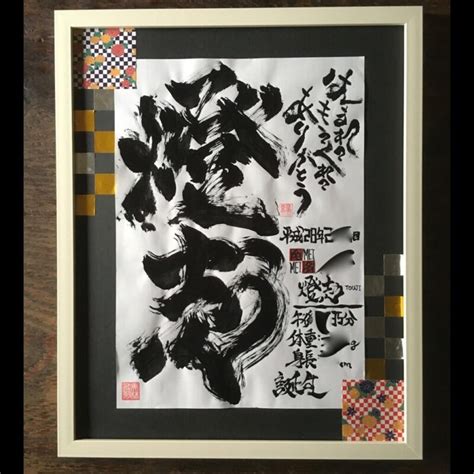 燈志
生まれて
きてくれて
ありがとう
平成28年 日
燈志 TOUJI
午後 35分
体重: g
身長: cm
誕生